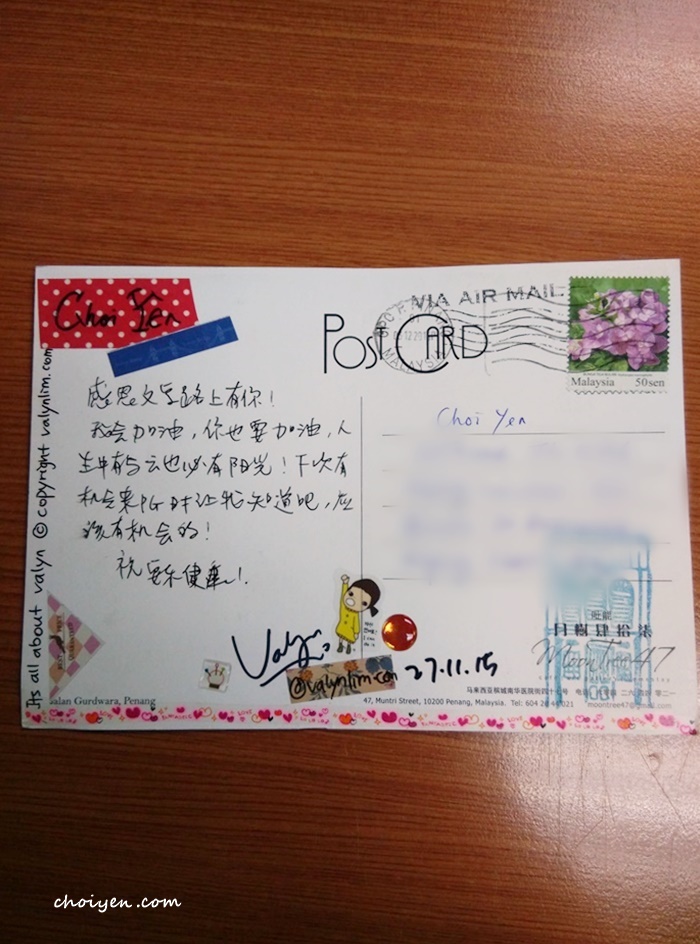 Choi Yen
VIA AIR MAIL
POSTCARD
Malaysia 50sen
Its all about valyn © copyright valynlim.com
感恩文字路上有你！
我会加油，你也要加油，人
生中有乌云也必有阳光！下次有
机会来PG时让我知道吧，应
该有机会的！
祝安乐健康！
Choi Yen
Valyn
@valynlim.com
27.11.15
月樹肆拾柒
Moontree 47
Jalan Gurdwara, Penang
马来西亚槟城南华医院街四十七号
47, Muntri Street, 10200 Penang, Malaysia. Tel: 604
choiyen.com